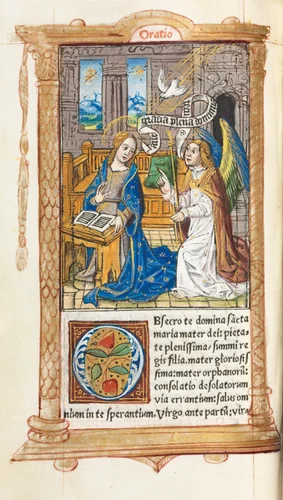 Oratio
Aue gratia plena domin
Obsecro te domina sãcta
maria mater dei: pieta-
te plenissima, summi re
gis filia. mater gloriosis
sima: mater orphanorũ:
consolatio desolatorum
via errantium: salus om
nium in te sperantium. Virgo ante partũ: vir-